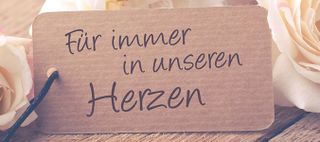 Für immer
in unseren
Herzen